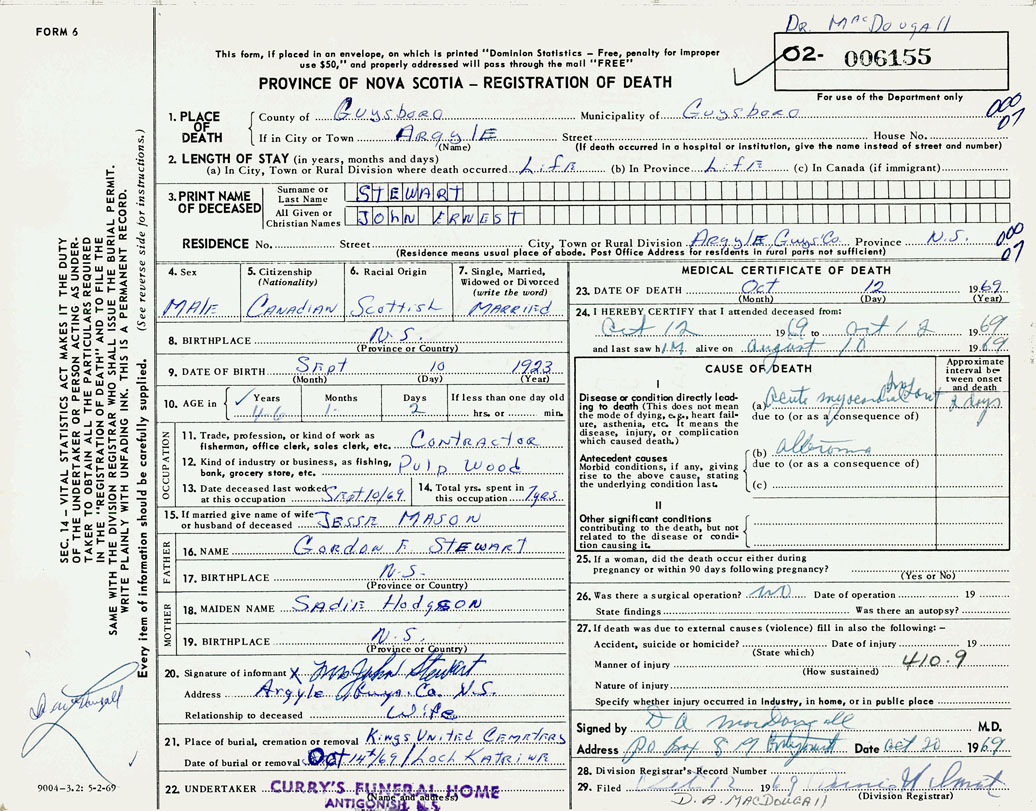 FORM 6
Dr. MacDougall
02- 006155
For use of the Department only
This form, if placed in an envelope, on which is printed "Dominion Statistics – Free, penalty for improper
use $50," and properly addressed will pass through the mail "FREE"
PROVINCE OF NOVA SCOTIA – REGISTRATION OF DEATH
000
07
1. PLACE OF DEATH County of Guysboro Municipality of Guysboro
If in City or Town Argyle Street House No.
(Name) (If death occurred in a hospital or institution, give the name instead of street and number)
2. LENGTH OF STAY (in years, months and days)
(a) In City, Town or Rural Division where death occurred Life (b) In Province Life (c) In Canada (if immigrant)
3. PRINT NAME OF DECEASED
Surname or Last Name STEWART
All Given or Christian Names JOHN ERNEST
RESIDENCE No. Street City, Town or Rural Division Argyle Guys Co. Province N.S.
(Residence means usual place of abode. Post Office Address for residents in rural parts not sufficient)
000
07
4. Sex
Male
5. Citizenship (Nationality)
Canadian
6. Racial Origin
Scottish
7. Single, Married, Widowed or Divorced (write the word)
Married
8. BIRTHPLACE N.S.
(Province or Country)
9. DATE OF BIRTH Sept 10 1923
(Month) (Day) (Year)
10. AGE in Years Months Days If less than one day old
46 1 2 hrs. or min.
OCCUPATION
11. Trade, profession, or kind of work as
fisherman, office clerk, sales clerk, etc. Contractor
12. Kind of industry or business, as fishing,
bank, grocery store, etc. Pulp Wood
13. Date deceased last worked
at this occupation Sept 10/69
14. Total yrs. spent in
this occupation 7 yrs
15. If married give name of wife
or husband of deceased Jesse Mason
FATHER
16. NAME Gordon F. Stewart
17. BIRTHPLACE N.S.
(Province or Country)
MOTHER
18. MAIDEN NAME Sadie Hodgson
19. BIRTHPLACE N.S.
(Province or Country)
20. Signature of informant X Mrs John Stewart
Address Argyle Guys. Co. N.S.
Relationship to deceased Wife
21. Place of burial, cremation or removal Kings United Cemetery
Date of burial or removal Oct 14th/69 / Loch Katrine
22. UNDERTAKER CURRY'S FUNERAL HOME
(Name and address)
ANTIGONISH N.S.
MEDICAL CERTIFICATE OF DEATH
23. DATE OF DEATH Oct 12 1969
(Month) (Day) (Year)
24. I HEREBY CERTIFY that I attended deceased from:
Oct 12 1969 to Oct 12 1969
and last saw him alive on August 10 1969
CAUSE OF DEATH
Approximate interval between onset and death
I
Disease or condition directly lead-
ing to death (This does not
mean the mode of dying, e.g., heart failure, asthenia, etc. It means the
disease, injury, or complication
which caused death.)
(a) Acute myocardial 2 days
due to (or as a consequence of)
Antecedent causes
Morbid conditions, if any, giving
rise to the above cause, stating
the underlying condition last.
(b)
due to (or as a consequence of)
(c)
II
Other significant conditions
contributing to the death, but not
related to the disease or condi-
tion causing it.
25. If a woman, did the death occur either during
pregnancy or within 90 days following pregnancy?
(Yes or No)
26. Was there a surgical operation? no Date of operation 19
State findings Was there an autopsy?
27. If death was due to external causes (violence) fill in also the following: –
Accident, suicide or homicide? Date of injury 19
(State which)
Manner of injury 410.9
(How sustained)
Nature of injury
Specify whether injury occurred in Industry, in home, or in public place
Signed by D A MacDougall M.D.
Address P.O. Box 8 Date Oct 20 1969
28. Division Registrar's Record Number
29. Filed 1969
(Division Registrar)
D. A. MACDOUGALL
SEC. 14 – VITAL STATISTICS ACT MAKES IT THE DUTY
OF THE UNDERTAKER OR PERSON ACTING AS UNDER-
TAKER TO OBTAIN ALL THE PARTICULARS REQUIRED
IN THE "REGISTRATION OF DEATH" AND TO FILE THE
SAME WITH THE DIVISION REGISTRAR WHO SHALL ISSUE THE BURIAL PERMIT.
WRITE PLAINLY WITH UNFADING INK. THIS IS A PERMANENT RECORD.
Every item of information should be carefully supplied. (See reverse side for instructions.)
9004-3.2: 5-2-69